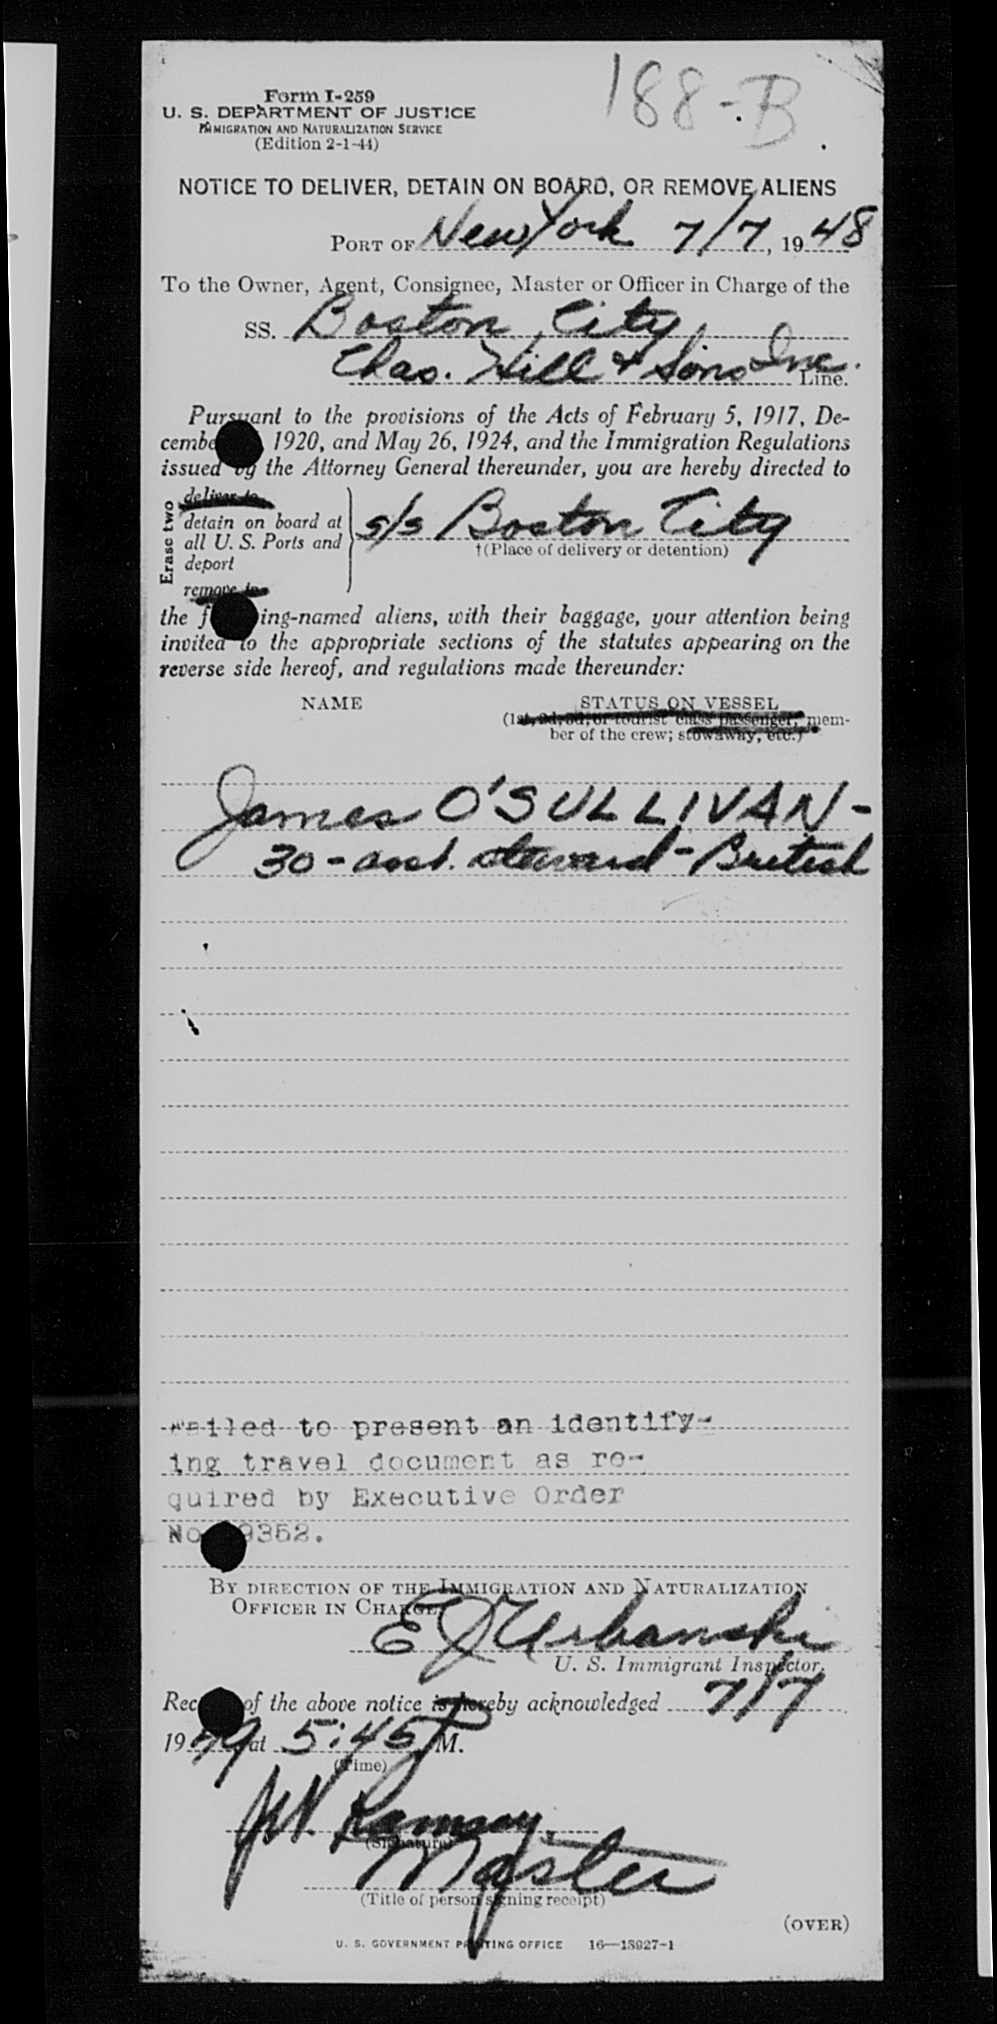 188-B
Form I-259
U. S. DEPARTMENT OF JUSTICE
IMMIGRATION AND NATURALIZATION SERVICE
(Edition 2-1-44)
NOTICE TO DELIVER, DETAIN ON BOARD, OR REMOVE ALIENS
PORT OF New York 7/7, 1948
To the Owner, Agent, Consignee, Master or Officer in Charge of the
SS. Boston City,
Chas. Hill & Sons Inc. Line.
Pursuant to the provisions of the Acts of February 5, 1917, De-
cembe 1920, and May 26, 1924, and the Immigration Regulations
issued by the Attorney General thereunder, you are hereby directed to
Erase two
deliver to
detain on board at
all U. S. Ports and
deport
remove to
s/s Boston City
†(Place of delivery or detention)
the f ing-named aliens, with their baggage, your attention being
invited to the appropriate sections of the statutes appearing on the
reverse side hereof, and regulations made thereunder:
NAME STATUS ON VESSEL
(1st, 2d, 3d, or tourist class passenger, mem-
ber of the crew; stowaway, etc.)
James O'SULLIVAN-
30 - asst. steward - British
Failed to present an identify-
ing travel document as re-
quired by Executive Order
No 9352.
BY DIRECTION OF THE IMMIGRATION AND NATURALIZATION
OFFICER IN CHARGE
E J Urbanski
U. S. Immigrant Inspector.
Rec of the above notice is hereby acknowledged 7/7
19 at 5:45 P M.
(Time)
Ramsay.
(Signature)
Master
(Title of person signing receipt)
(OVER)
U. S. GOVERNMENT PRINTING OFFICE 16—13927-1